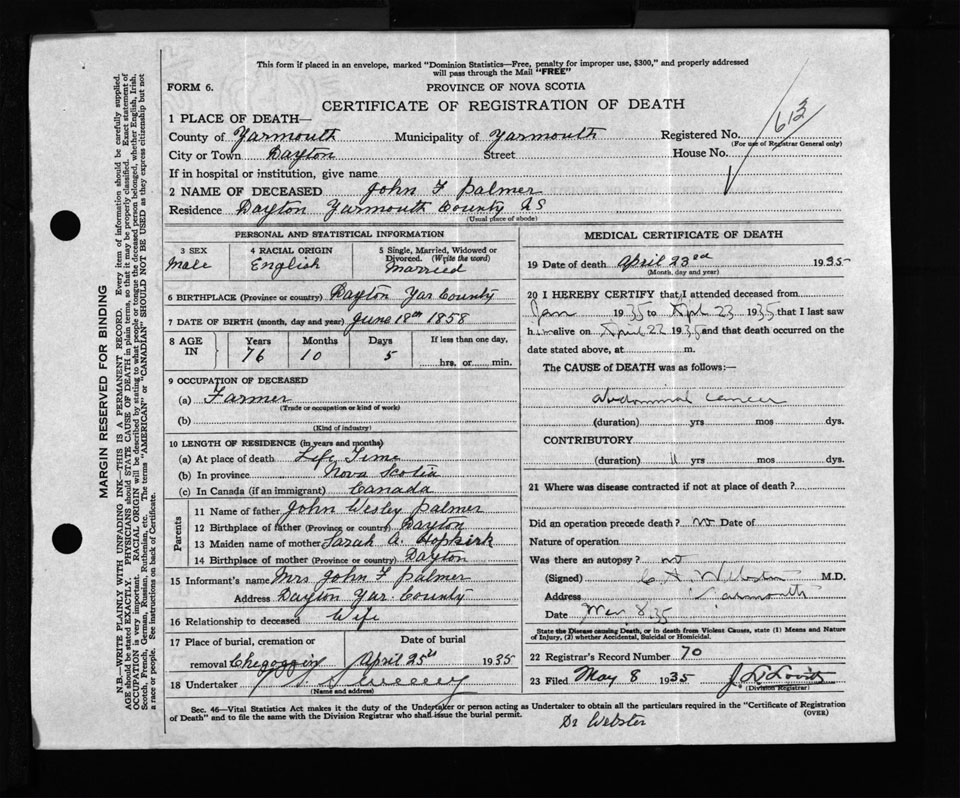 This form if placed in an envelope, marked "Dominion Statistics—Free, penalty for improper use, $300," and properly addressed
will pass through the Mail "FREE"
FORM 6.
PROVINCE OF NOVA SCOTIA
CERTIFICATE OF REGISTRATION OF DEATH
613
1 PLACE OF DEATH—
County of Yarmouth Municipality of Yarmouth Registered No.
(For use of Registrar General only)
City or Town Dayton Street House No.
If in hospital or institution, give name
2 NAME OF DECEASED John F Palmer
Residence Dayton Yarmouth County NS
(Usual place of abode)
PERSONAL AND STATISTICAL INFORMATION
3 SEX 4 RACIAL ORIGIN 5 Single, Married, Widowed or
Divorced. (Write the word)
Male English Married
6 BIRTHPLACE (Province or country) Dayton Yar County
7 DATE OF BIRTH (month, day and year) June 18th 1858
8 AGE IN Years Months Days If less than one day,
76 10 5 hrs. or min.
9 OCCUPATION OF DECEASED
(a) Farmer
(Trade or occupation or kind of work)
(b)
(Kind of industry)
10 LENGTH OF RESIDENCE (in years and months)
(a) At place of death Life Time
(b) In province Nova Scotia
(c) In Canada (if an immigrant) Canada
Parents
11 Name of father John Wesley Palmer
12 Birthplace of father (Province or country) Dayton
13 Maiden name of mother Sarah A. Hopkirk
14 Birthplace of mother (Province or country) Dayton
15 Informant's name Mrs John F Palmer
Address Dayton Yar. County
16 Relationship to deceased Wife
17 Place of burial, cremation or Date of burial
removal Chegoggin April 25th 1935
18 Undertaker
(Name and address)
MEDICAL CERTIFICATE OF DEATH
19 Date of death April 23rd 1935
(Month, day and year)
20 I HEREBY CERTIFY that I attended deceased from
Jan 1935 to Apl 23 1935 that I last saw
him alive on April 22 1935 and that death occurred on
date stated above, at m.
The CAUSE of DEATH was as follows:—
Abdominal cancer
(duration) yrs mos dys.
CONTRIBUTORY
(duration) yrs mos dys.
21 Where was disease contracted if not at place of death?
Did an operation precede death? no Date of
Nature of operation
Was there an autopsy? no
(Signed) C A Webster M.D.
Address Yarmouth
Date May 8 35
State the Disease causing Death, or in death from Violent Causes, state (1) Means and Nature
of Injury, (2) whether Accidental, Suicidal or Homicidal.
22 Registrar's Record Number 70
23 Filed May 8 1935
(Division Registrar)
Sec. 46—Vital Statistics Act makes it the duty of the Undertaker or person acting as Undertaker to obtain all the particulars required in the "Certificate of Registration
of Death" and to file the same with the Division Registrar who shall issue the burial permit.
(OVER)
Dr Webster
MARGIN RESERVED FOR BINDING
N.B.—WRITE PLAINLY WITH UNFADING INK—THIS IS A PERMANENT RECORD. Every item of information should be carefully supplied.
AGE should be stated EXACTLY. PHYSICIANS should STATE CAUSE OF DEATH in plain terms, so that it may be properly classified. Exact statement of
OCCUPATION is very important. RACIAL ORIGIN will be described by stating to what people or tongue the deceased person belonged, whether English, Irish,
Scotch, French, German, Russian, Ruthenian, etc. The terms "AMERICAN" or "CANADIAN" SHOULD NOT BE USED as they express citizenship but not
a race or people. See instructions on back of Certificate.